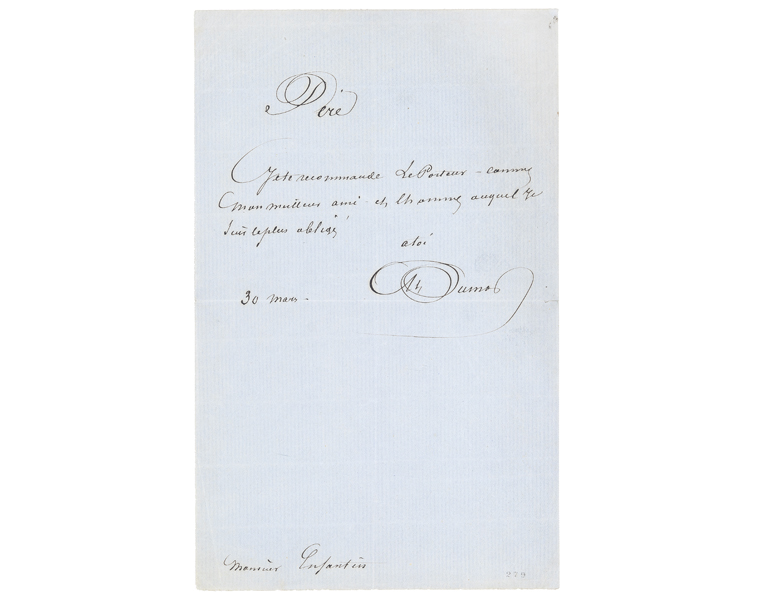 Père
Je te recommande Le Porteur - comme
mon meilleur ami - et l'homme auquel je
suis le plus obligé
a toi
Al Dumas
30 mars -
Monsieur Enfantin
229